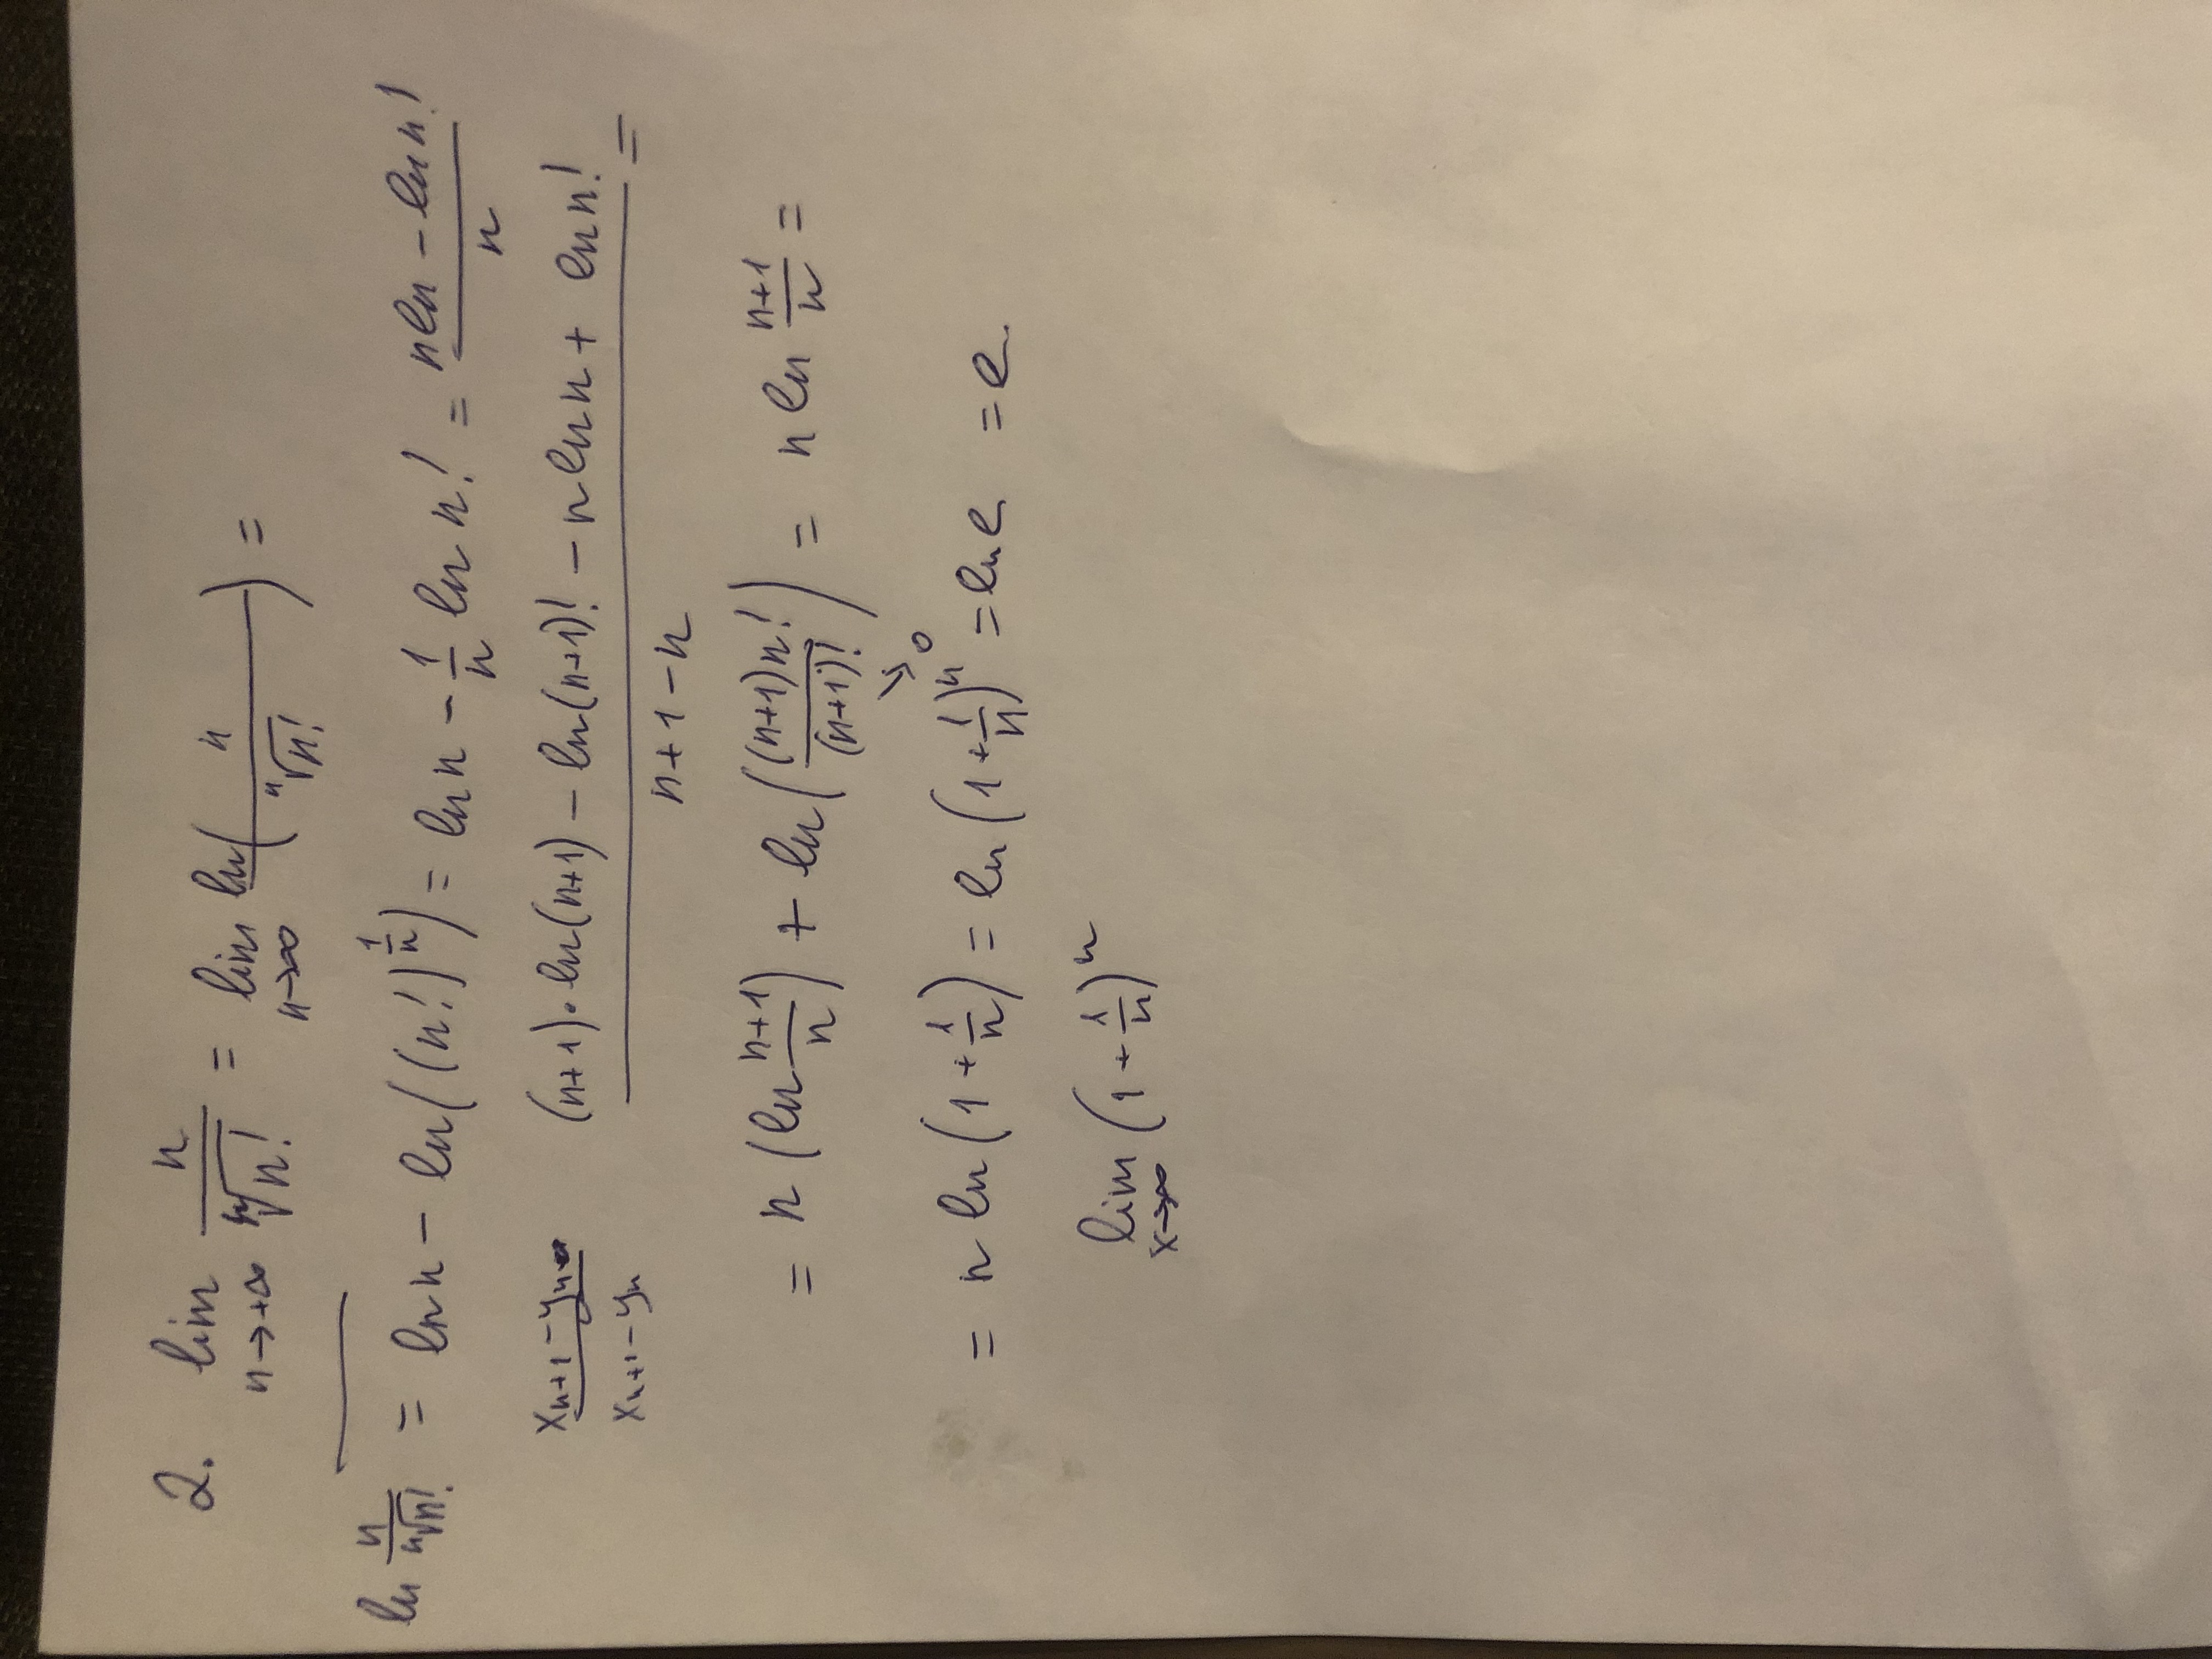 2. lim n→+∞ n/ⁿ√n! = lim n→∞ ln(n/ⁿ√n!) =
ln n/ⁿ√n! = ln n − ln((n!)^(1/n)) = ln n − 1/n ln n! = (n ln − ln n!)/n
(xₙ₊₁ − yₙ)/(xₙ₊₁ − yₙ) ((n+1)·ln(n+1) − ln(n+1)! − n ln n + ln n!)/(n+1−n) =
= n (ln (n+1)/n) + ln((n+1)n!/(n+1)!) = n ln (n+1)/n =
↘ 0
= n ln(1 + 1/n) = ln(1 + 1/n)ⁿ = ln e = e.
lim x→∞ (1 + 1/n)ⁿ